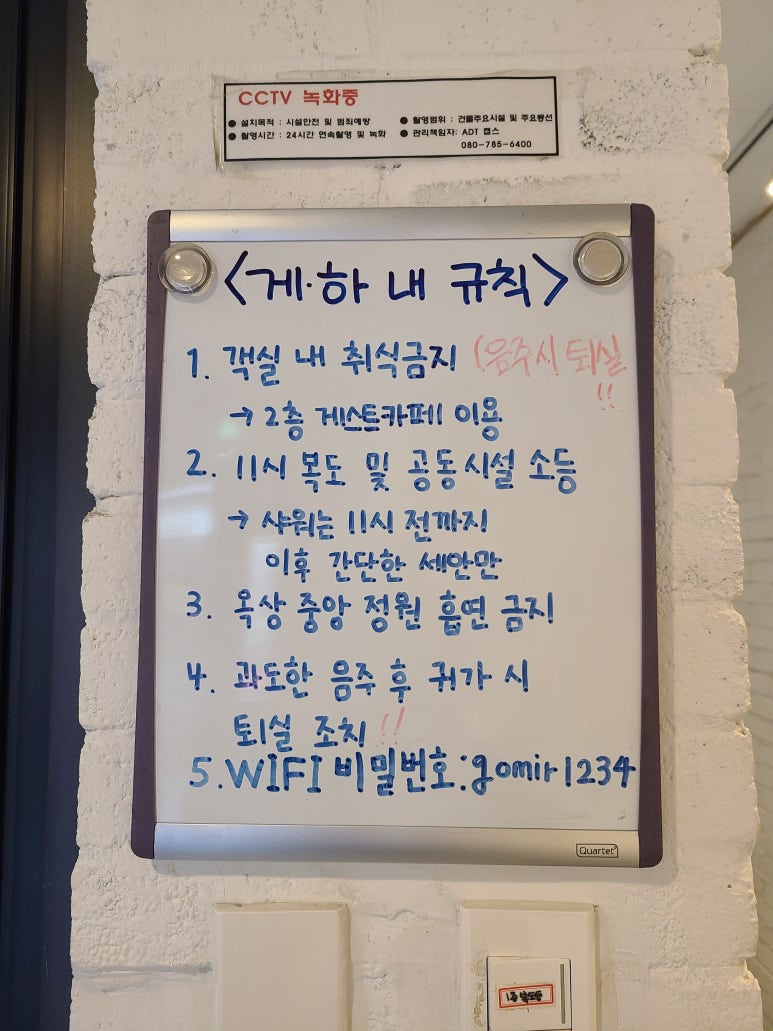 CCTV 녹화중
● 설치목적 : 시설안전 및 범죄예방
● 촬영범위 : 건물주요시설 및 주요동선
● 촬영시간 : 24시간 연속촬영 및 녹화
● 관리책임자: ADT 캡스
080-785-6400
<게·하 내 규칙>
1. 객실 내 취식금지 (음주시 퇴실!!
→ 2층 게스트카페 이용
2. 11시 복도 및 공동시설 소등
→ 샤워는 11시 전까지
이후 간단한 세안만
3. 옥상 중앙 정원 흡연 금지
4. 과도한 음주 후 귀가 시
퇴실 조치!!
5. WIFI 비밀번호:gomir1234
Quartet